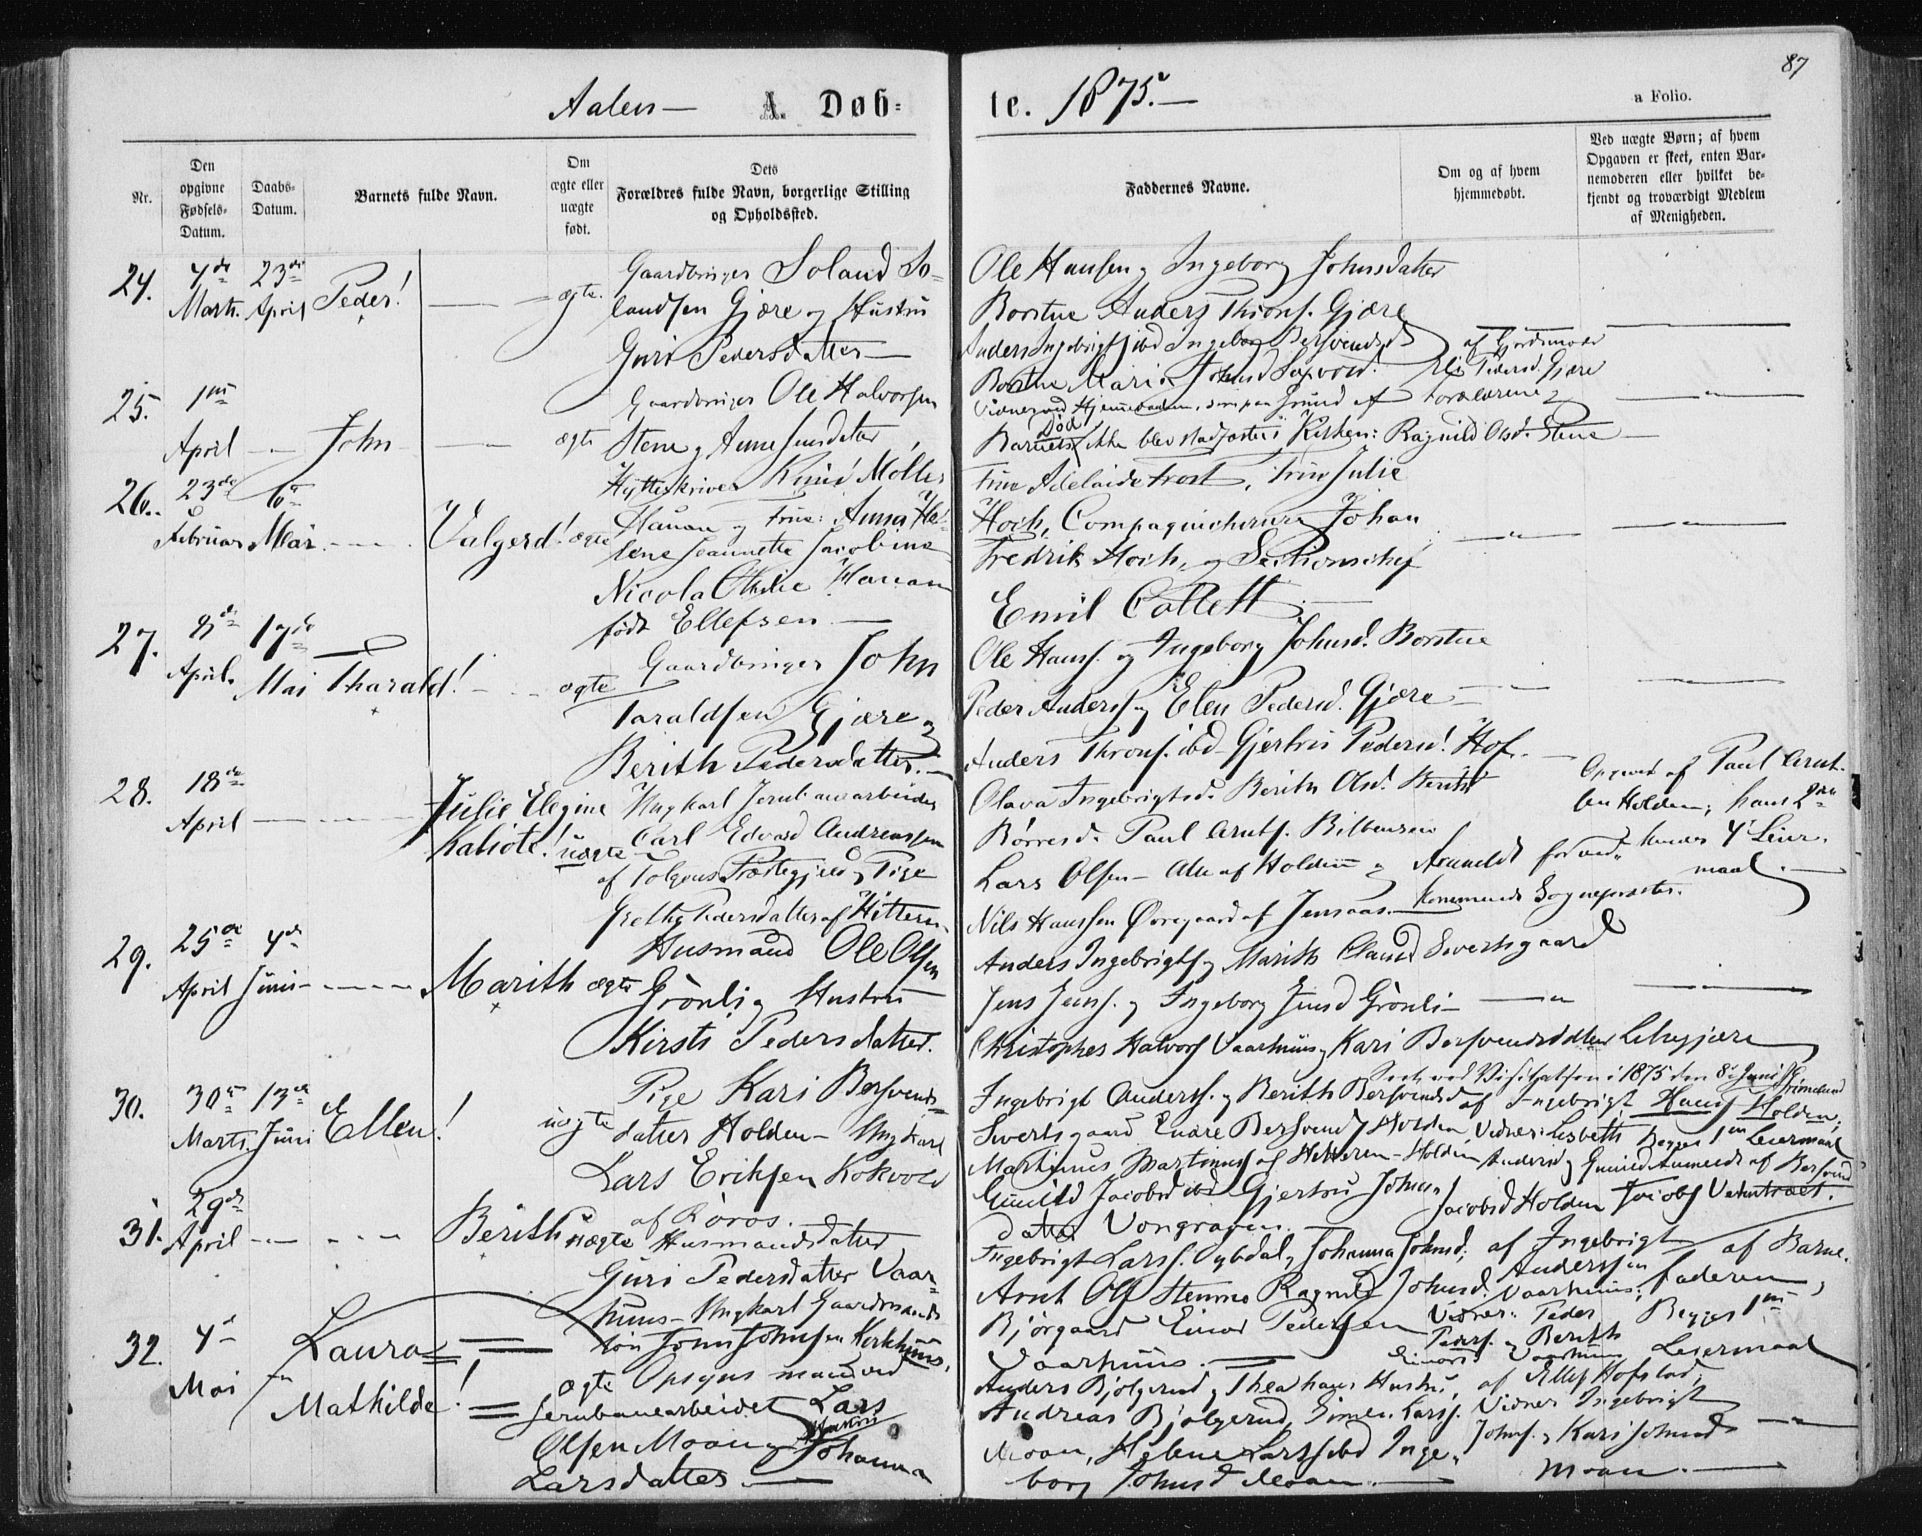 87
Aalen — A. Døb-
te. 1875. —
a Folio.
Nr.
Den
opgivne
Fødsels-
Datum.
Daabs-
Datum.
Barnets fulde Navn.
Om
ægte eller
uægte
født.
Dets
Forældres fulde Navn, borgerlige Stilling
og Opholdssted.
Faddernes Navne.
Om og af hvem
hjemmedøbt.
Ved uægte Børn; af hvem
Opgaven er skeet, enten Bar-
nemoderen eller hvilket be-
kjendt og troværdigt Medlem
af Menigheden.
24.
7de
Marts.
23de
April
Peder!
ægte.
Gaardbruger Soland So-
landsen Gjære og Hustru
Guri Pedersdatter —
Ole Hansen og Ingeborg Johnsdatter
Borstue Anders Throns. Gjære
Anders Ingebrigts. ibd Ingeborg Bersvendsd
25.
1ste
April
John
ægte
Gaardbruger Ole Halvorsen
Stene og Anne Jensdatter
Borstue Marit Johnsd
af Jordemoder
Eli Pedersd. Gjære
Vidner ved Hjemmedaaben, som paa Grund af Forældrene
Barnets Død ikke blev stadfæstet i Kirken: Ragnild Olsd. Stene —
26.
23de
Februar
6te
Mai
Valgerd!
ægte
Hytteskriver Knud Møller
Hauan og Frue: Anna He-
lene Jeannette Jacobine
Nicola Othilie Hauan
født Ellefsen. —
Frue Adelaide Trost, Frue Julie
Hoch, Compagnichirurg Johan
Fredrik Hoch, og Sectionschef
Emil Collett. —
27.
8de
April.
17de
Mai
Tharald!
ægte
Gaardbruger John
Taraldsen Gjære og
Berith Pedersdatter. —
Ole Hans. og Ingeborg Johnsd. Borstue
Peder Anders. og Elen Pedersd. Gjære —
Anders Throns. ibd Gjertru Pedersd. Hof. —
28.
18de
April
Julie Elegine
Kaliote!
uægte
Ungkarl Jernbanearbeider
Carl Edvard Andreassen
af Tolgens Præstegjeld og Pige
Grethe Pedersdatter af Hitteren.
Olava Ingebrigtsd. Berith Olsd.
Børresd. Paul Arnts.
Lars Olsen — Alle af Holden og
Nils Hansen Øvregaard af Jensaas. —
Anmeldt forved-
kommende Sognepræster.
Opgivet af Paul Arnt-
sen Holden; hans 2det
hendes 4de Leier-
maal. —
29.
25de
April
4de
Juni
Marith
ægte
Husmand Ole Olsen
Grønli og Hustru
Kirsti Pedersdatter.
Anders Ingebrigts. og Marith Sivertsgaard
Jens Jens. og Ingeborg Jensd Grønli —
Christopher Halvors Vaarhuus, Kari Bersvendsdatter Litlegjære
30.
30te
Marts.
13de
Juni
Ellen!
uægte
Pige Kari Bersvends-
datter Holden — Ungkarl
Lars Eriksen Kokvold
af Røros.
Ingebrigt Anders. og Berith Bersvendsd
Sivertsgaard Endre Bersvends Holden
Martinus Martinus af Hitteren — Holden
Gunild Jacobsd ibd Gjertru Johns-
datter Vongraven. —
ved Visitatsen i 1875 den 8de Juni
af Ingebrigt Hans Holden,
Vidner: Lisbeth
Jacobsd Holden
Begges 1ste Leiermaal
Anmeldt af Bersvend
31.
29de
April
Berith
uægte
Husmandsdatter
Guri Pedersdatter Vaar-
huus — Ungkarl Gaardmands
søn John Johnsen Kirkhuus.
Ingebrigt Lars. Johanna Johnsd.
Arnt Ols Stenmo Ragnild Johnsd.
Bjørgaard Einar Pedersen
Vaarhuus. —
af Ingebrigt
Anderssen
Vaarhuus;
Vidner: Peder
Peders. og Berith
Einars. Vaarhuus
af Barne-
faderen,
Begges 1ste
Leiermaal
32.
4de
Mai
Laura
Mathilde!
ægte
Opsynsmand ved
Jernbanearbeidet Lars
Olsen Moan og Hustru Johanna
Larsdatter —
Anders Bjølgerud og Thea hans Hustru,
Andreas Bjølgerud, Simen Lars.
Moan, Helene Larsd ibd Inge-
borg Johnsd Moan. —
af Ellef Hofstad,
Vidner Ingebrigt
Johns. og Kari Johnsd
Moan. —